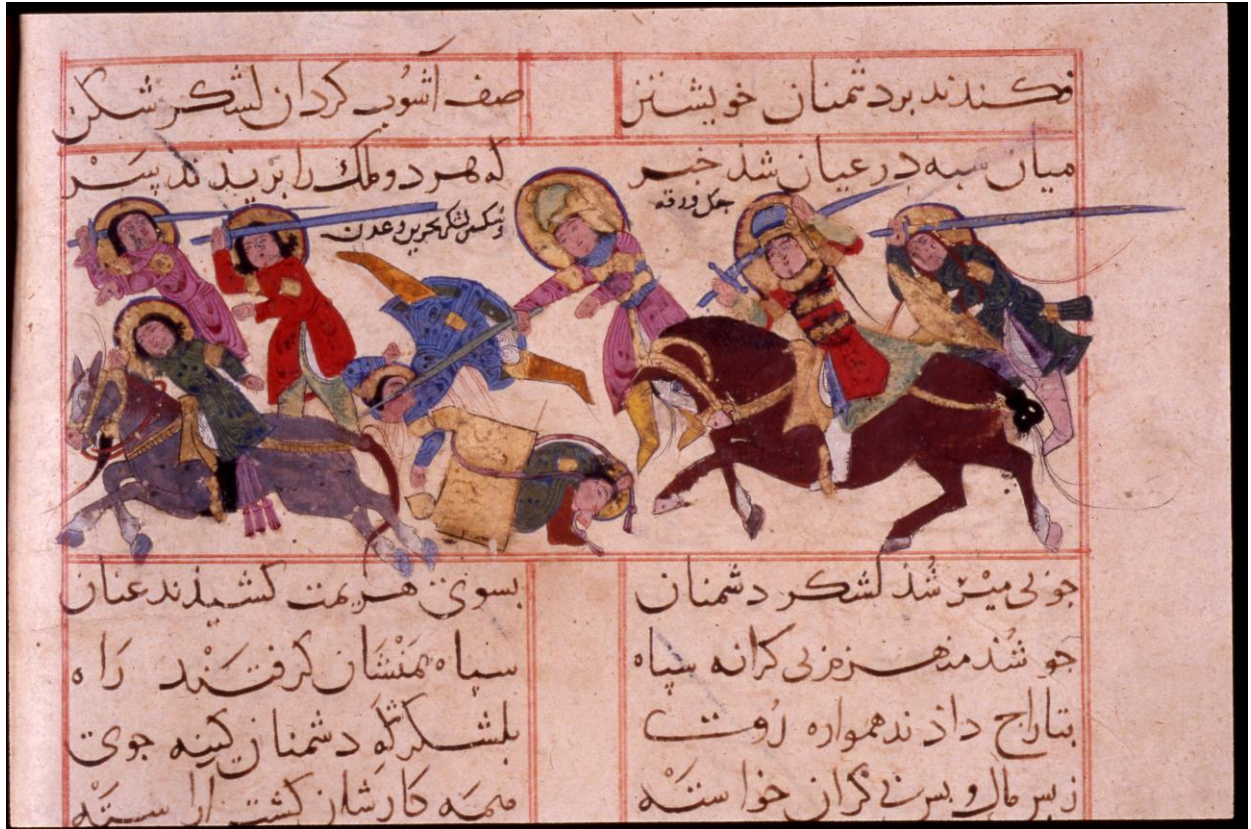 فکندند بر دشمنان خویشتن صف آشوب کردان لشکر شکن
میان سبه در عیان شذ خبر که هر دو ملک را بریذند سر
جنک ورقه
و شکستن لشکر بحرین و عدن
جو بی میر شذ لشکر دشمنان بسوی هزیمت کشیذند عنان
جو شذ منهزم بی کرانه سپاه سپاه یمنشان کرفتند راه
بتاراج داذند همواره روی بلشکرکه دشمنان کینه جوی
ز بس مال و بس بی کران خواسته همه کارشان کشت آراسته